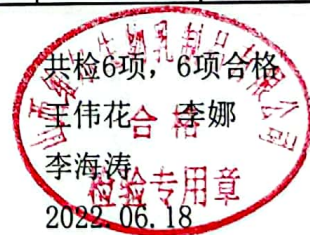 共检6项，6项合格
王伟花 李娜
李海涛
2022.06.18
合格
检验专用章